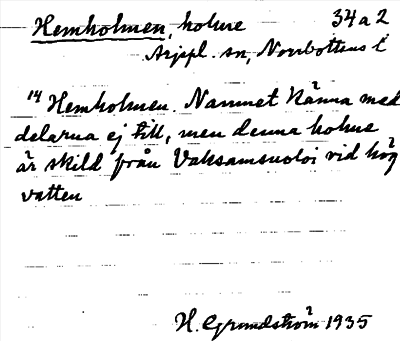 Hemholmen, holme 34a2
Arjepl. sn, Norrbottens l
14 Hemholmen. Namnet känna med
delarna ej till, men denna holme
är skild från Vaksamsuoloi vid hög
vatten
H. Grundström 1935